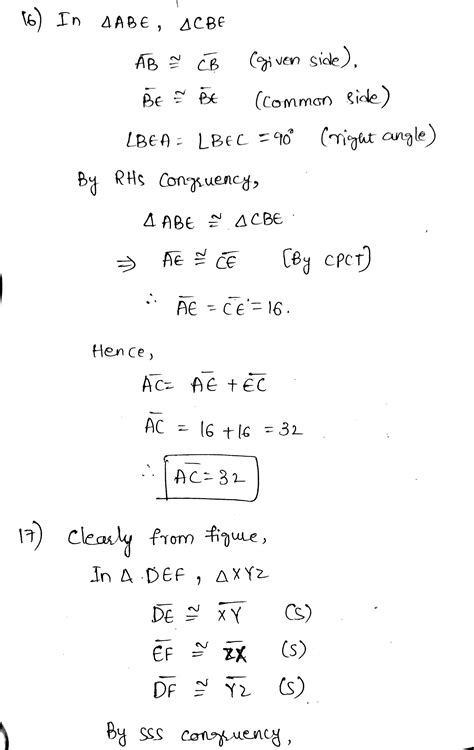 16) In ΔABE, ΔCBE
A̅B̅ ≅ C̅B̅ (given side),
B̅E̅ ≅ B̅E̅ (common side)
∠BEA = ∠BEC = 90° (right angle)
By RHS Congruency,
Δ ABE ≅ ΔCBE
⇒ A̅E̅ ≅ C̅E̅ [By CPCT]
∴ A̅E̅ = C̅E̅ = 16.
Hence,
A̅C̅ = A̅E̅ + E̅C̅
A̅C̅ = 16 + 16 = 32
∴ A̅C̅ = 32
17) Clearly from figure,
In Δ DEF, ΔXYZ
D̅E̅ ≅ X̅Y̅ (S)
E̅F̅ ≅ Z̅X̅ (S)
D̅F̅ ≅ Y̅Z̅ (S)
By SSS congruency,